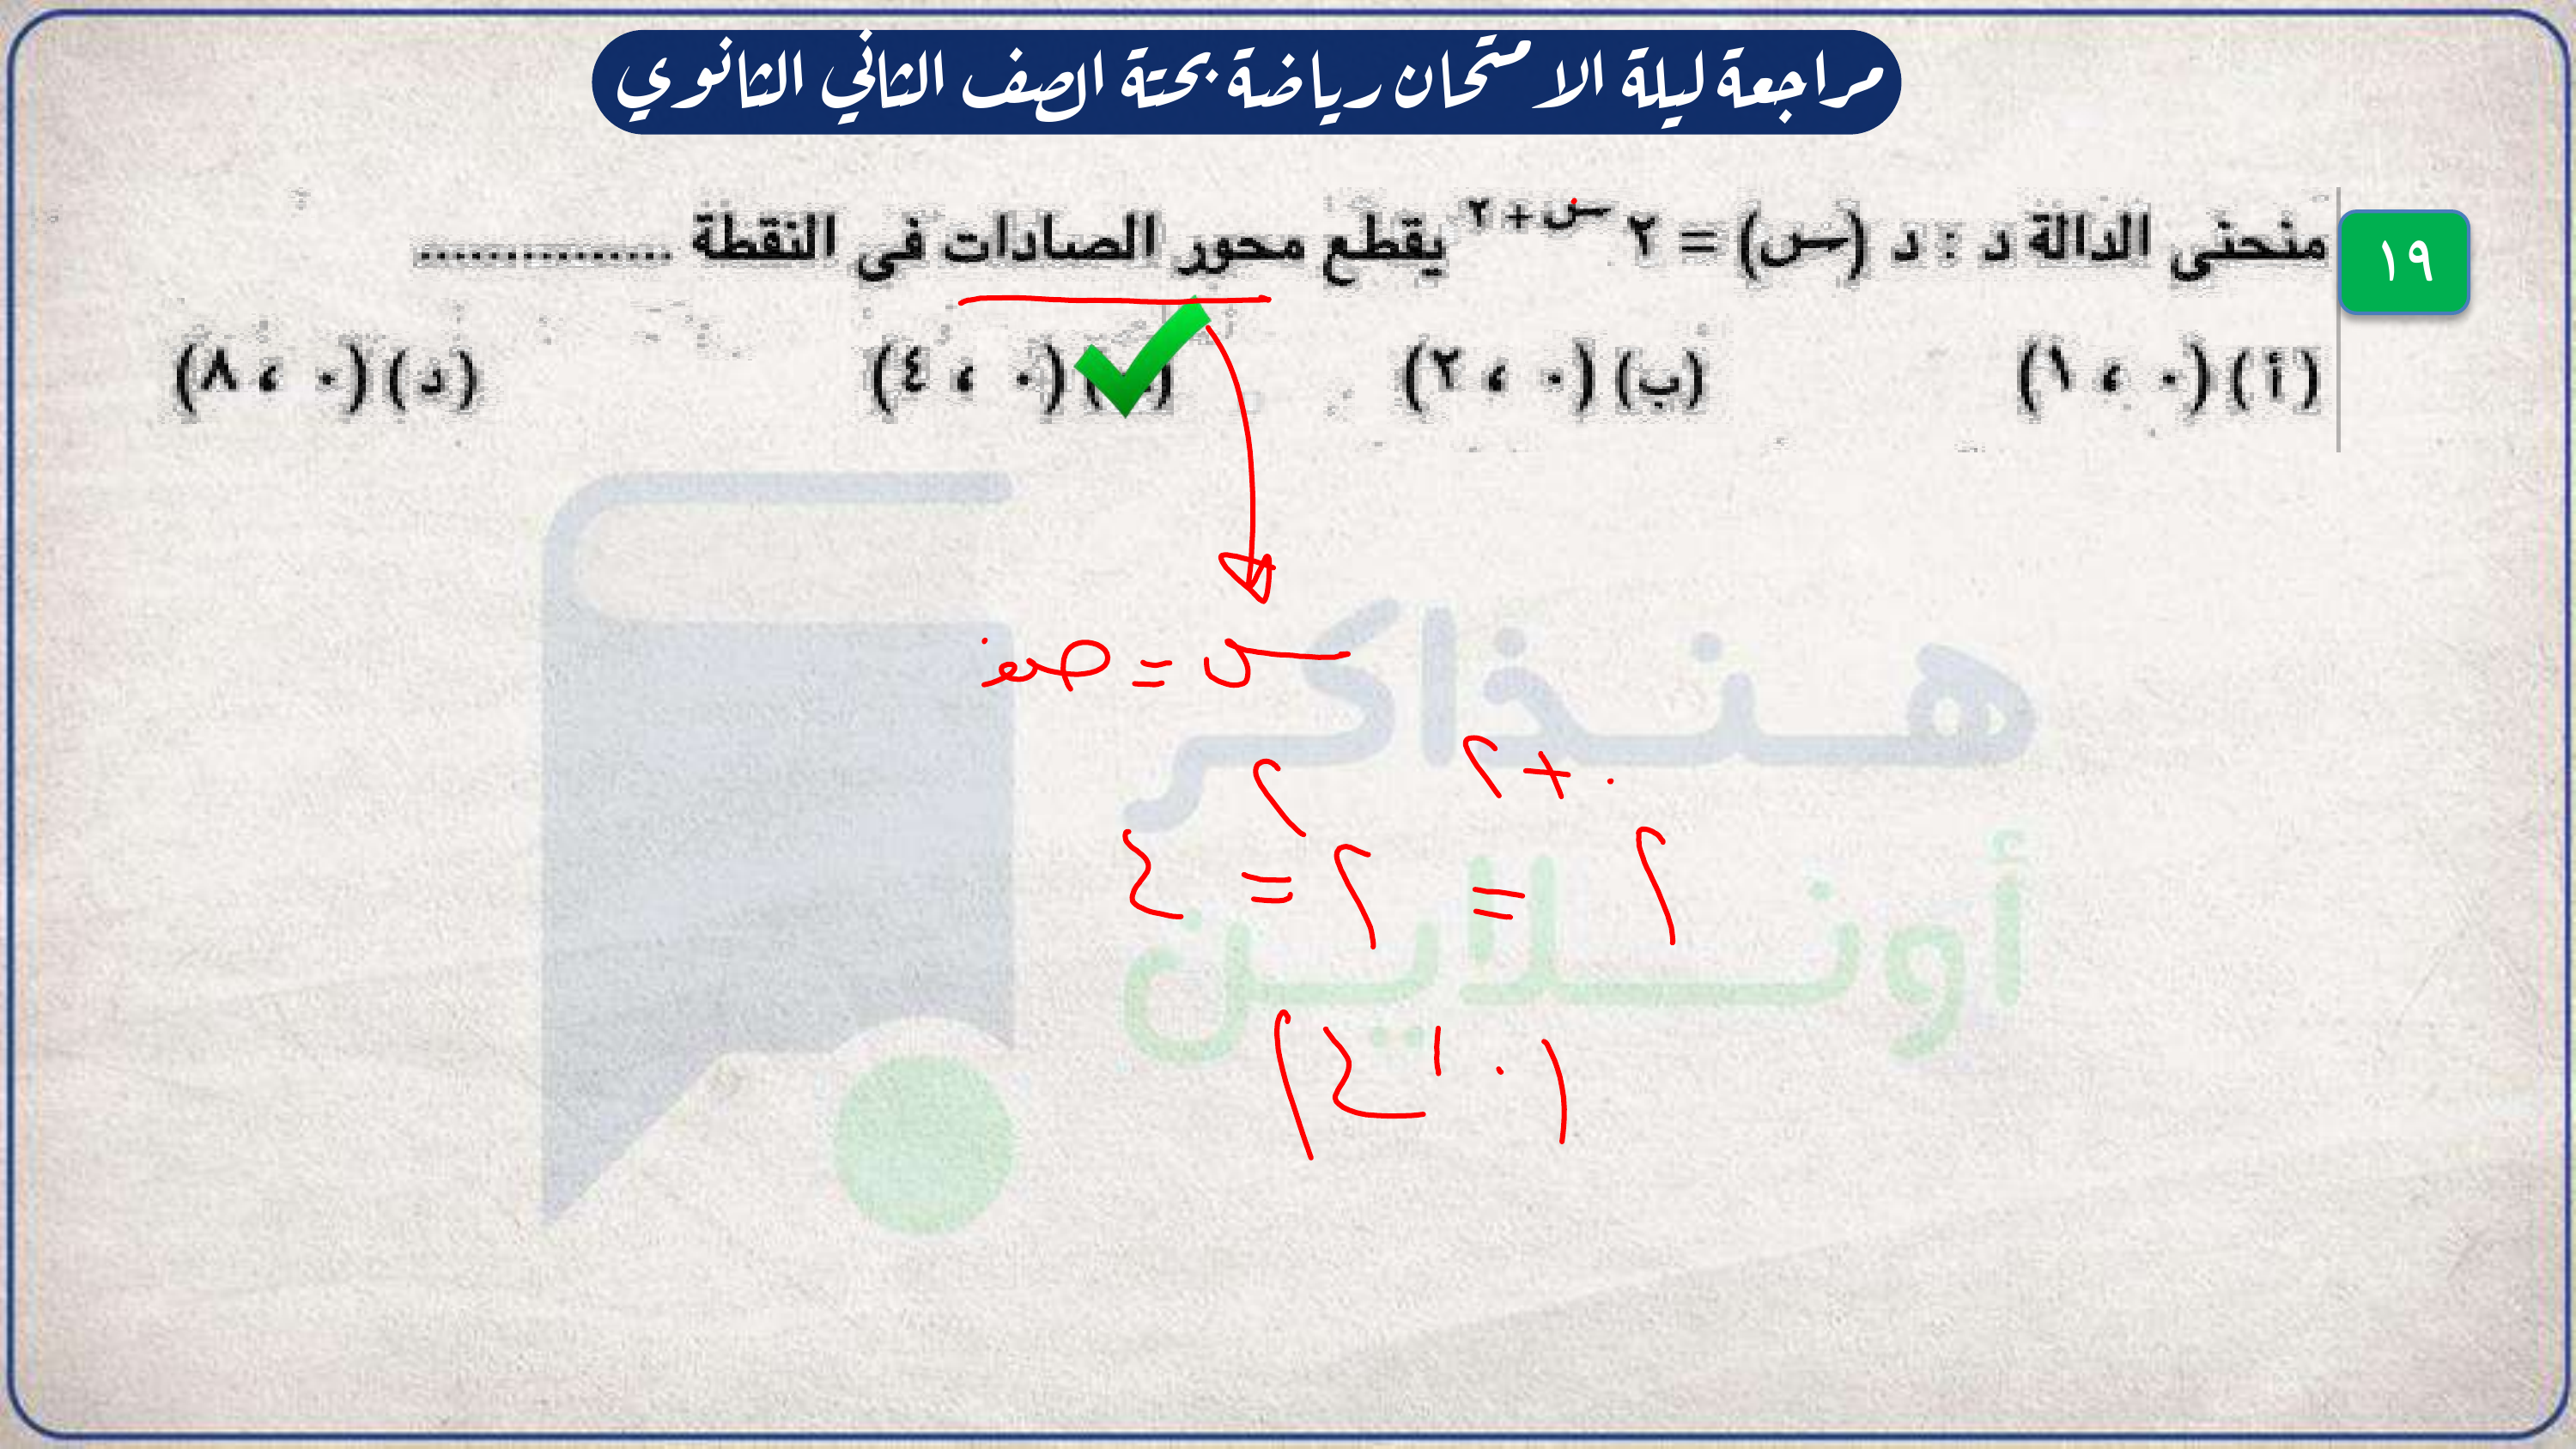 مراجعة ليلة الامتحان رياضة بحتة الصف الثاني الثانوي
١٩ منحنى الدالة د : د (س) = ٢ س + ٢ يقطع محور الصادات فى النقطة ................
(أ) (٠ ، ١) (ب) (٠ ، ٢) (٠ ، ٤) (د) (٠ ، ٨)
س = صفر
٢ ٠+٢ = ٢ ٢ = ٤
(٠ ، ٤)
هنذاكر
أونلاين